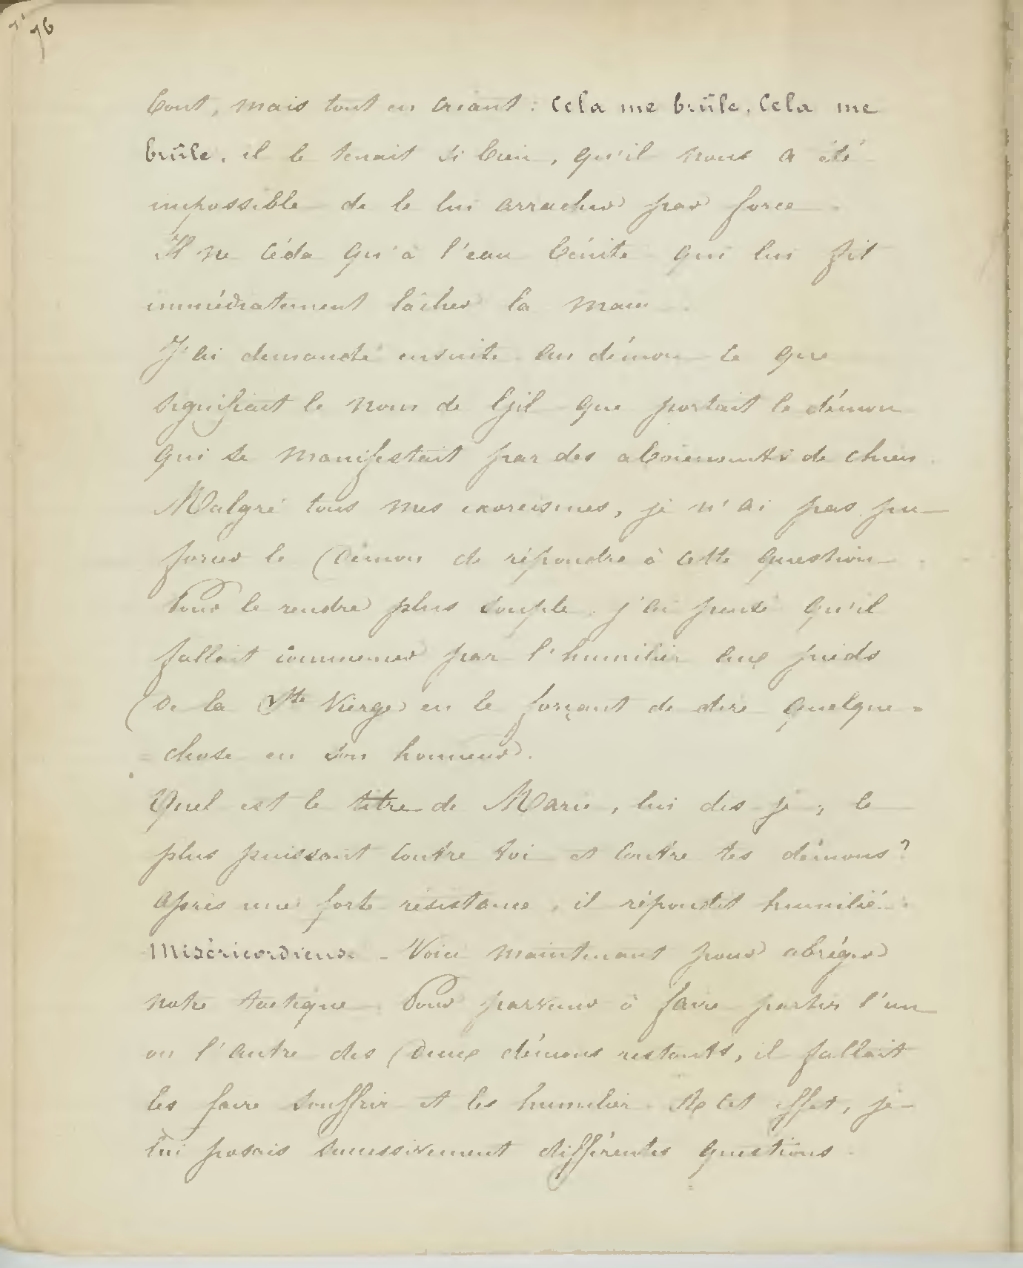 76
bout, mais tout en criant : Cela me brûle, Cela me
brûle, il le tenait si bien, qu'il nous a été
impossible de le lui arracher par force.
Il ne céda qu'à l'eau bénite qui lui fit
immédiatement lâcher la main.
J'ai demandé ensuite au démon ce que
signifiait le nom de Ejil que portait le démon
qui se manifestait par des aboiements de chien.
Malgré tous mes exorcismes, je n'ai pas pu
forcer le Démon de répondre à cette question.
Pour le rendre plus souple j'ai pensé qu'il
fallait commencer par l'humilier aux pieds
De la Ste Vierge en le forçant de dire quelque=
=chose en son honneur.
Quel est le titre de Marie, lui dis-je, le
plus puissant contre toi et contre tes démons?
Après une forte résistance, il répondit humilié :
Miséricordieuse - Voici maintenant pour abréger
notre tactique. Pour parvenir à faire partir l'un
ou l'autre des Deux démons restants, il fallait
les faire souffrir et les humilier. A cet effet, je
lui posais successivement différentes questions.